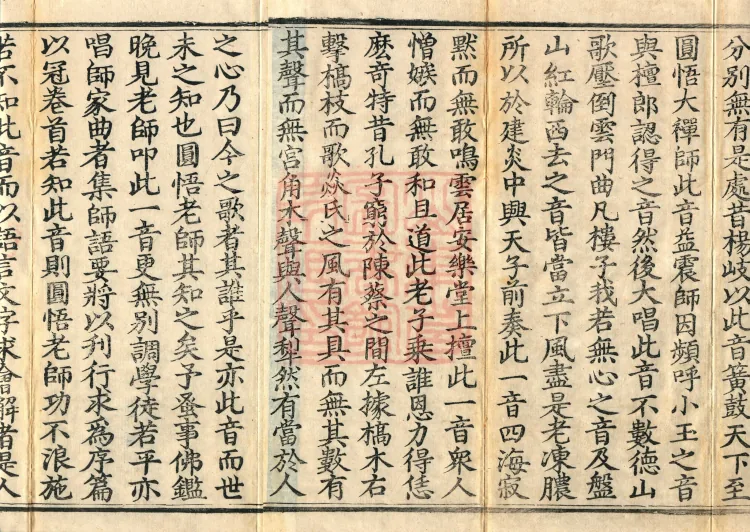 分別無有是處昔楊岐以此音簧鼓天下至
圓悟大禪師此音益震師因頻呼小玉之音
與檀郎認得之音然後大唱此音不數德山
歌壓倒雲門曲凡樓子我若無心之音及盤
山紅輪西去之音皆當立下風盡是老凍膿
所以於建炎中興天子前奏此一音四海寂
默而無敢鳴雲居安樂堂上擅此一音衆人
憎嫉而無敢和且道此老子乗誰恩力得恁
麽奇特昔孔子窮於陳蔡之間左據槁木右
擊槁枝而歌焱氏之風有其具而無其數有
其聲而無宫角木聲與人聲犁然有當於人
之心乃曰今之歌者其誰乎是亦此音而世
未之知也圓悟老師其知之矣予蚤事佛鑑
晚見老師叩此一音更無別調學徒若平亦
唱師家曲者集師語要將以刋行求為序篇
以冠巻首若知此音則圓悟老師功不浪施
若不知此音而以語言文字求會解者是人